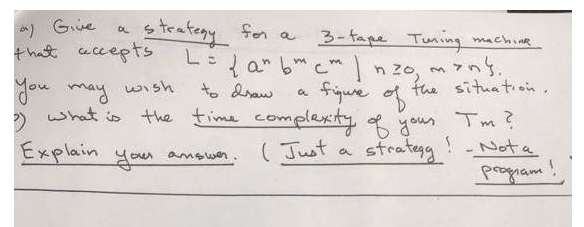 a) Give a strategy for a 3-tape Turing machine
that accepts L = { aⁿ bᵐ cᵐ | n ≥ 0, m > n }.
You may wish to draw a figure of the situation.
b) what is the time complexity of your Tm?
Explain your answer. ( Just a strategy! - Not a
program!